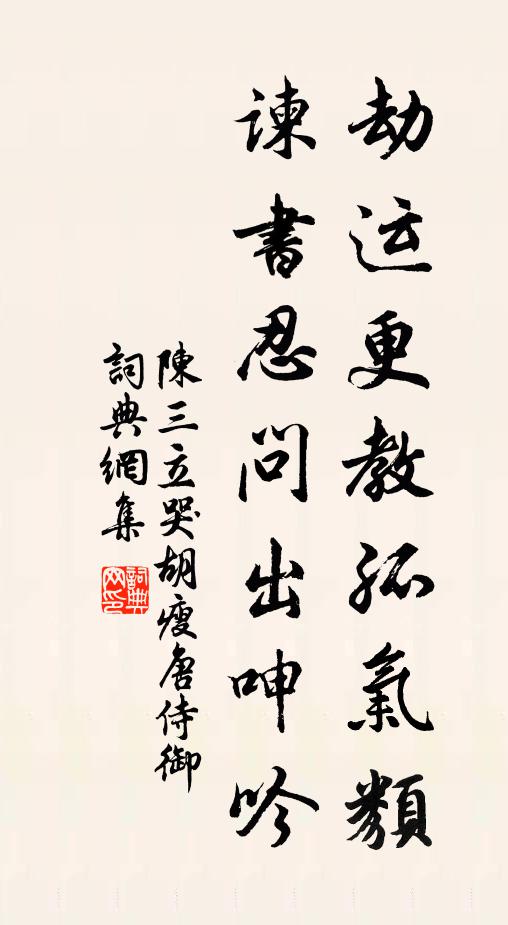 劫运更教孤氣類
諫書忍問出呻吟
陳三立哭胡瘦唐侍御
詞典網集
詞典网印